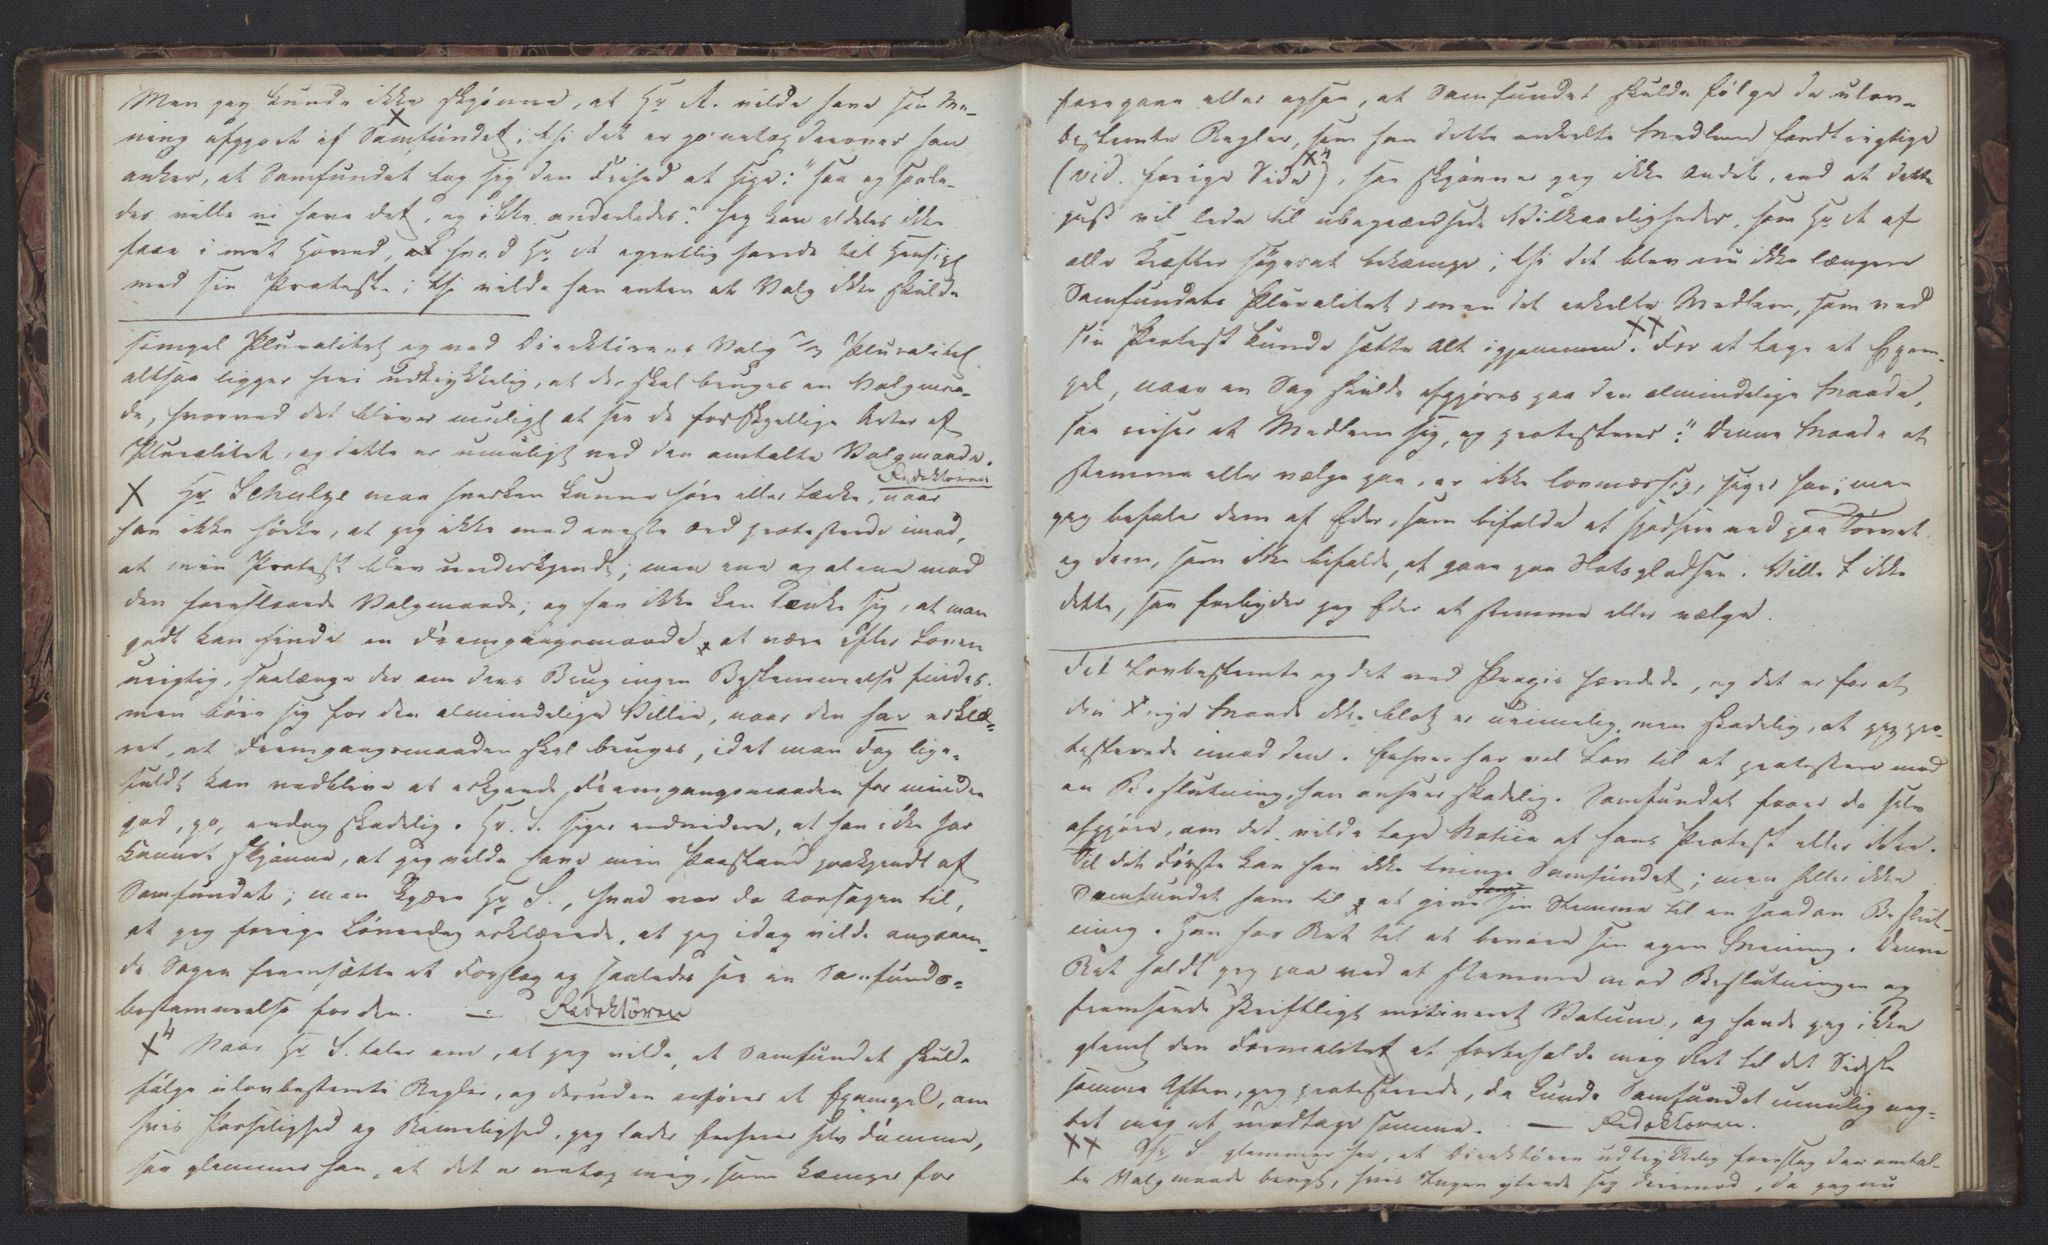 Men jeg kunde ikke skjønne, at Hr A. vilde have sin Me-
ning afgjort af Samfundet; thi det er jo netop derover han
anker, at Samfundet tog sig den Frihed at sige: "saa og saale-
des ville vi have det, og ikke anderledes." Jeg kan aldeles ikke
faae i mit Hoved, hvad Hr A egentlig havde til Hensigt
med sin Protest; thi vilde han enten at Valg ikke skulde
simpel Pluralitet og ved Direktionens Valg 2/3 Pluralitet
altsaa ligger heri udtrykkelig, at der skal bruges en Valgmaa-
de, hvorved det bliver muligt at see de forskjellige Arter af
Pluralitet, og dette er umuligt ved den omtalte Valgmaade.
Redaktøren
X Hr Schulze maa hverken kunne høre eller tænke, naar
han ikke hørte, at jeg ikke med eneste Ord protesterede imod,
at min Protest blev underkjendt; men ene og alene mod
den foreslaaede Valgmaade; og han ikke kan tænke sig, at man
godt kan finde en Fremgangsmaade at være efter Loven
urigtig, saalænge der om dens Brug ingen Bestemmelse findes.
men bøie sig for den almindelige Villie, naar den har erklæ-
ret, at Fremgangsmaaden skal bruges, idet man dog lige-
fuldt kan vedblive at erkjende Fremgangsmaaden for mindre
god, ja, endog skadelig. Hr. S. siger endvidere, at han ikke har
kunnet skjønne, at jeg vilde have min Paastand paakjendt af
Samfundet; men kjære Hr S., hvad var da Aarsagen til,
at jeg forige Løverdag erklærede, at jeg idag vilde angaaen-
de Sagen fremsætte et Forslag og saaledes see en Samfunds-
bestemmelse for den. — Redaktøren
X4 Naar Hr S. taler om, at jeg vilde, at Samfundet skulde
følge ulovbestemte Regler, og desuden anfører et Exempel, om
hvis Passelighed og Rimelighed, jeg lader Enhver selv dømme,
saa glemmer han, at det er netop mig, som kæmper for
foregaae eller ogsaa, at Samfundet skulde følge de ulov-
bestemte Regler, som han dette enkelte Medlem fandt rigtige
(vid. forige Side X4), saa skjønner jeg ikke andet, end at dette
just vil lede til ubegrændsede Vilkaarligheder, som Hr A af
alle Kræfter søger at bekæmpe; thi det blev nu ikke længere
Samfundets Pluralitet, men det enkelte Medlem, som ved
sin Protest kunde sætte Alt igjennem. XX For at tage et Exem-
pel, naar en Sag skulde afgjøres paa den almindelige Maade,
saa reiser et Medlem sig, og protesterer: "Denne Maade at
stemme eller vælge paa, er ikke lovmæssig, siger han; men
jeg befaler dem af Eder, som bifalde at spadsere ned paa Torvet
og dem, som ikke bifalde, at gaae paa Slotspladsen. Ville I ikke
dette, saa forbyder jeg Eder at stemme eller vælge.
det Lovbestemte og det ved Praxis Hævdede, og det er for at
den nye Maade ikke blot er urimelig, men skadelig, at jeg pro-
testerede imod den. Enhver har vel Lov til at protestere mod
en Beslutning, han anseer skadelig. Samfundet faaer da selv
afgjøre, om det vilde tage Notice af hans Protest eller ikke.
Til det Første kan han ikke tvinge Samfundet; men heller ikke
Samfundet ham til at give sin Stemme til en saadan Beslut-
ning. Han har Ret til at bevare sin egen Mening. Denne
Ret holdt jeg paa ved at stemme mod Beslutningen og
fremsende skriftligt motiveret Votum, og havde jeg ikke
glemt den Formalitet at forbeholde mig Ret til det Sidste
samme Aften, jeg protesterede, da kunde Samfundet umulig neg-
tet mig at modtage samme. — Redaktøren.
XX Hr S glemmer her, at Direktøren udtrykkelig foreslog den omtal-
te Valgmaade brugt, hvis Ingen yttrede sig derimod, da jeg nu